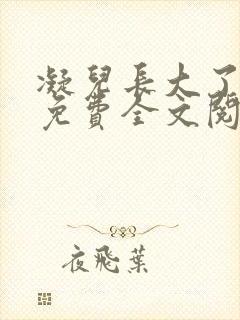 凝兒長大了
免費全文閱
夜飛葉